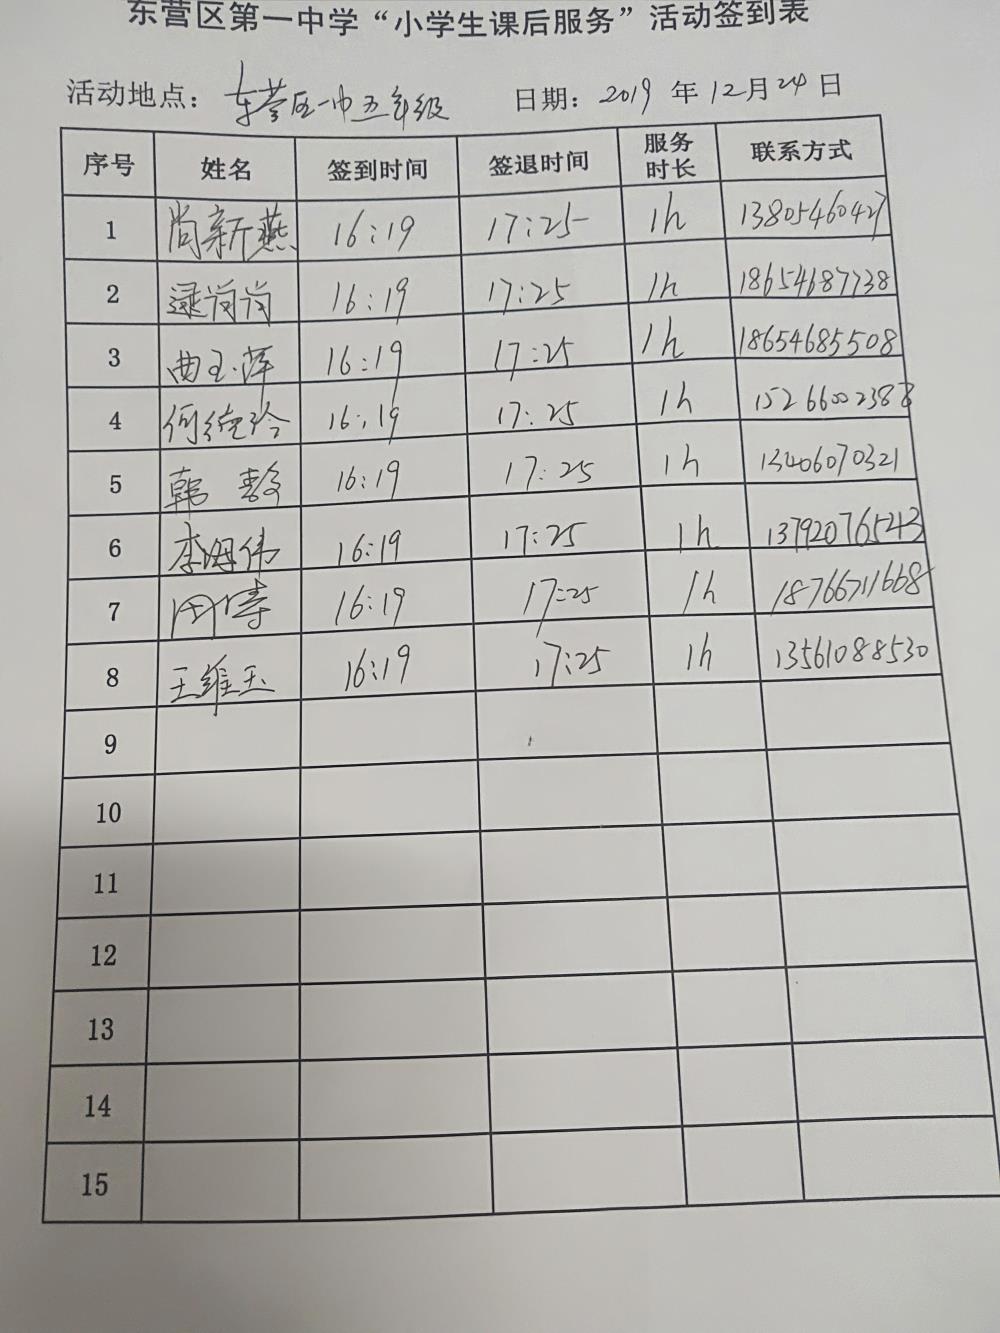 东营区第一中学“小学生课后服务”活动签到表
活动地点：东营区一中五年级 日期：2019 年 12 月 24 日
序号 姓名 签到时间 签退时间 服务时长 联系方式
1 尚新燕 16:19 17:25 1h 13805460427
2 逯岗岗 16:19 17:25 1h 18654687738
3 曲玉萍 16:19 17:25 1h 18654685508
4 何 16:19 17:25 1h 15266002388
5 韩 16:19 17:25 1h 13406070321
6 李海伟 16:19 17:25 1h 13792076543
7 周涛 16:19 17:25 1h 18766711668
8 王维玉 16:19 17:25 1h 13561088530
9
10
11
12
13
14
15